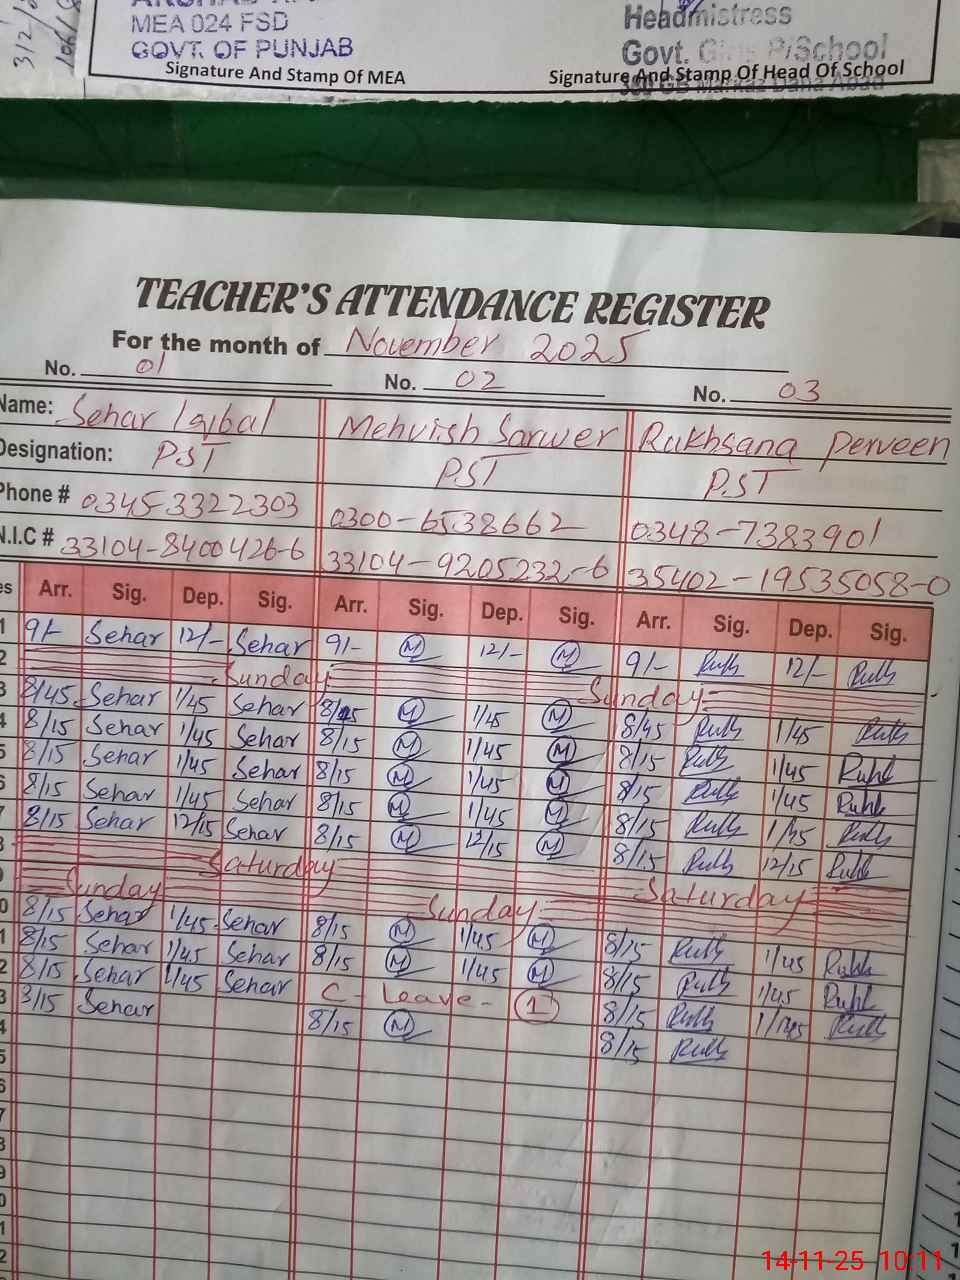 MEA 024 FSD
GOVT. OF PUNJAB
Signature And Stamp Of MEA
Headmistress
Govt. Girls P/School
Signature And Stamp Of Head Of School
TEACHER'S ATTENDANCE REGISTER
For the month of November 2025
No. 01 No. 02 No. 03
Name: Sehar Iqbal Mehvish Sarwer Rukhsana Perveen
Designation: PST PST PST
Phone # 0345-3322303 0300-6538662 0348-7383901
N.I.C # 33104-8400426-6 33104-9205232-6 35402-19535058-0
Arr. Sig. Dep. Sig. Arr. Sig. Dep. Sig. Arr. Sig. Dep. Sig.
1 9/- Sehar 12/- Sehar 9/- M 12/- M 9/- Ruth 12/- Ruth
2 Sunday Sunday
3 8/45 Sehar 1/45 Sehar 8/45 M 1/45 M 8/45 Ruth 1/45 Ruth
4 8/15 Sehar 1/45 Sehar 8/15 M 1/45 M 8/15 Ruth 1/45 Ruhl
5 8/15 Sehar 1/45 Sehar 8/15 M 1/45 M 8/15 Ruth 1/45 Ruhl
6 8/15 Sehar 1/45 Sehar 8/15 M 1/45 M 8/15 Ruth 1/45 Ruth
7 8/15 Sehar 12/15 Sehar 8/15 M 12/15 M 8/15 Ruth 12/15 Ruhl
Saturday Saturday
Sunday Sunday
0 8/15 Sehar 1/45 Sehar 8/15 M 1/45 M 8/15 Ruth 1/45 Ruhl
1 8/15 Sehar 1/45 Sehar 8/15 M 1/45 M 8/15 Ruth 1/45 Ruhl
2 8/15 Sehar 1/45 Sehar C-Leave- 1 8/15 Ruth 1/45 Ruth
3 8/15 Sehar 8/15 M 8/15 Ruth
4
5
6
7
8
9
0
1
2
14-11-25 10:11